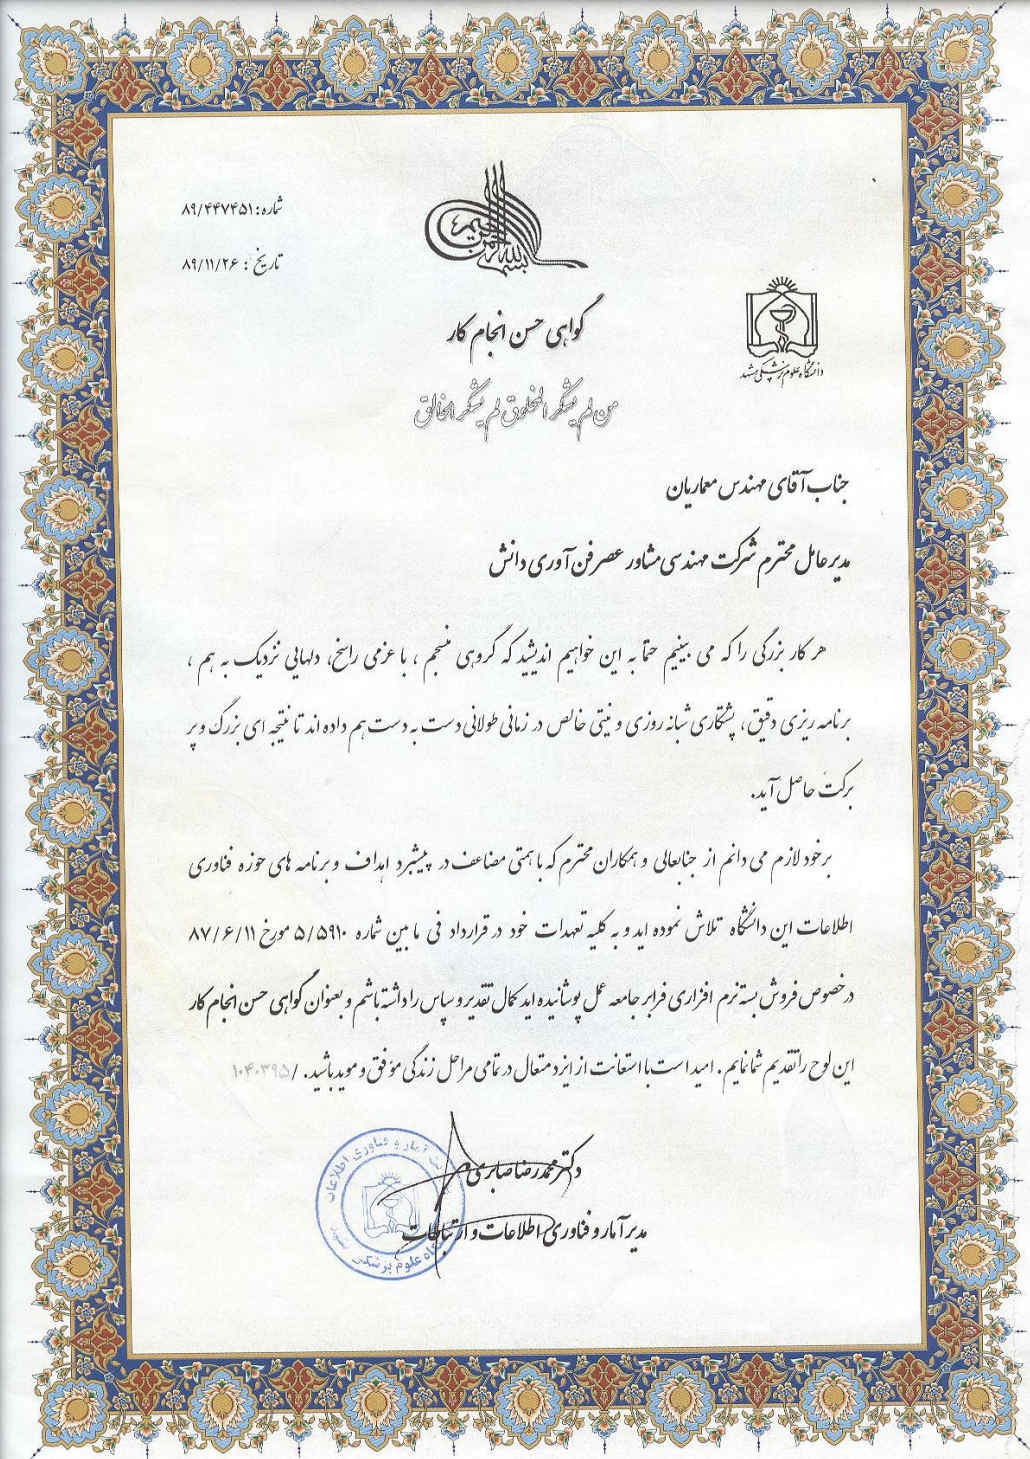 بسم الله الرحمن الرحیم
شماره: ۸۹/۴۴۷۴۵۱
تاریخ : ۸۹/۱۱/۲۶
دانشگاه علوم پزشکی مشهد
گواهی حسن انجام کار
من لم یشکر المخلوق لم یشکر الخالق
جناب آقای مهندس معماریان
مدیر عامل محترم شرکت مهندسی مشاور عصر فن آوری دانش
هر کار بزرگی را که می بینیم حتماً به این خواهیم اندیشید که گروهی منسجم ، با عزمی راسخ، دلهایی نزدیک به هم ،
برنامه ریزی دقیق، پشتکاری شبانه روزی و نیتی خالص در زمانی طولانی دست به دست هم داده اند تا نتیجه ای بزرگ و پر
برکت حاصل آید.
برخود لازم می دانم از جنابعالی و همکاران محترم که با همتی مضاعف در پیشبرد اهداف و برنامه های حوزه فناوری
اطلاعات این دانشگاه تلاش نموده اید و به کلیه تعهدات خود در قرارداد فی ما بین شماره ۵/۵۹۱۰ مورخ ۸۷/۶/۱۱
درخصوص فروش بسته نرم افزاری فرابر جامعه عمل پوشانیده اید کمال تقدیر و سپاس را داشته باشم و بعنوان گواهی حسن انجام کار
این لوح را تقدیم شما نمایم. امید است با استعانت از ایزد متعال در تمامی مراحل زندگی موفق و موید باشید. /۱۰۴۰۳۹۵
دکتر محمدرضا صابری
مدیر آمار و فناوری اطلاعات و ارتباطات
آمار و فناوری اطلاعات
علوم پزشکی